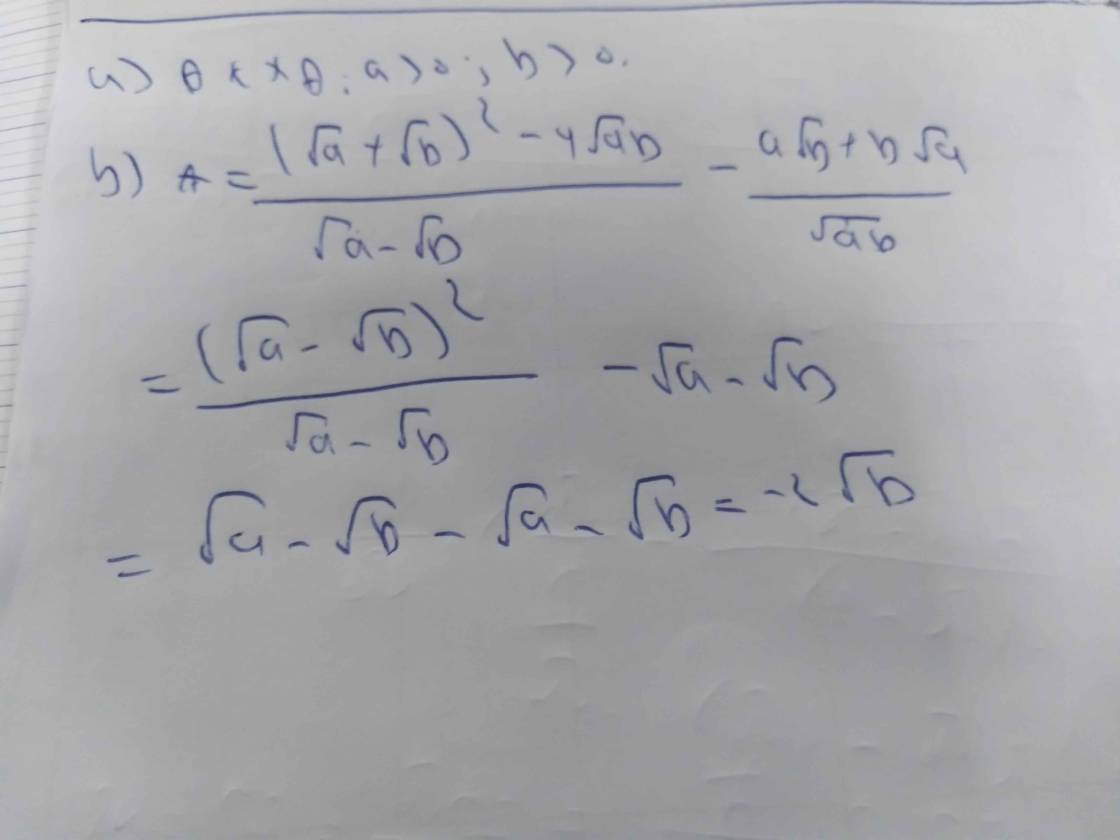 a) ĐKXĐ: a > 0; b > 0.
b) A = ((√a + √b)² - 4√ab)/(√a - √b) - (a√b + b√a)/√ab
= (√a - √b)²/(√a - √b) - √a - √b
= √a - √b - √a - √b = -2√b